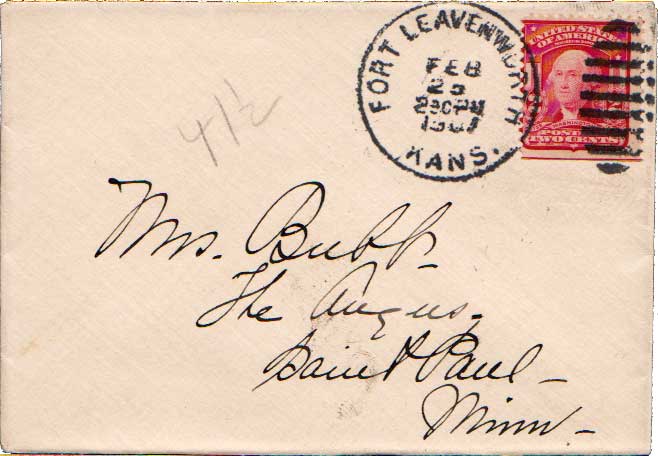 FORT LEAVENWORTH
FEB
25
230PM
1907
KANS.
UNITED STATES
OF AMERICA
POSTAGE
TWO CENTS
4 1/2
Mrs. Bubb.
The Angus,
Saint Paul –
Minn –